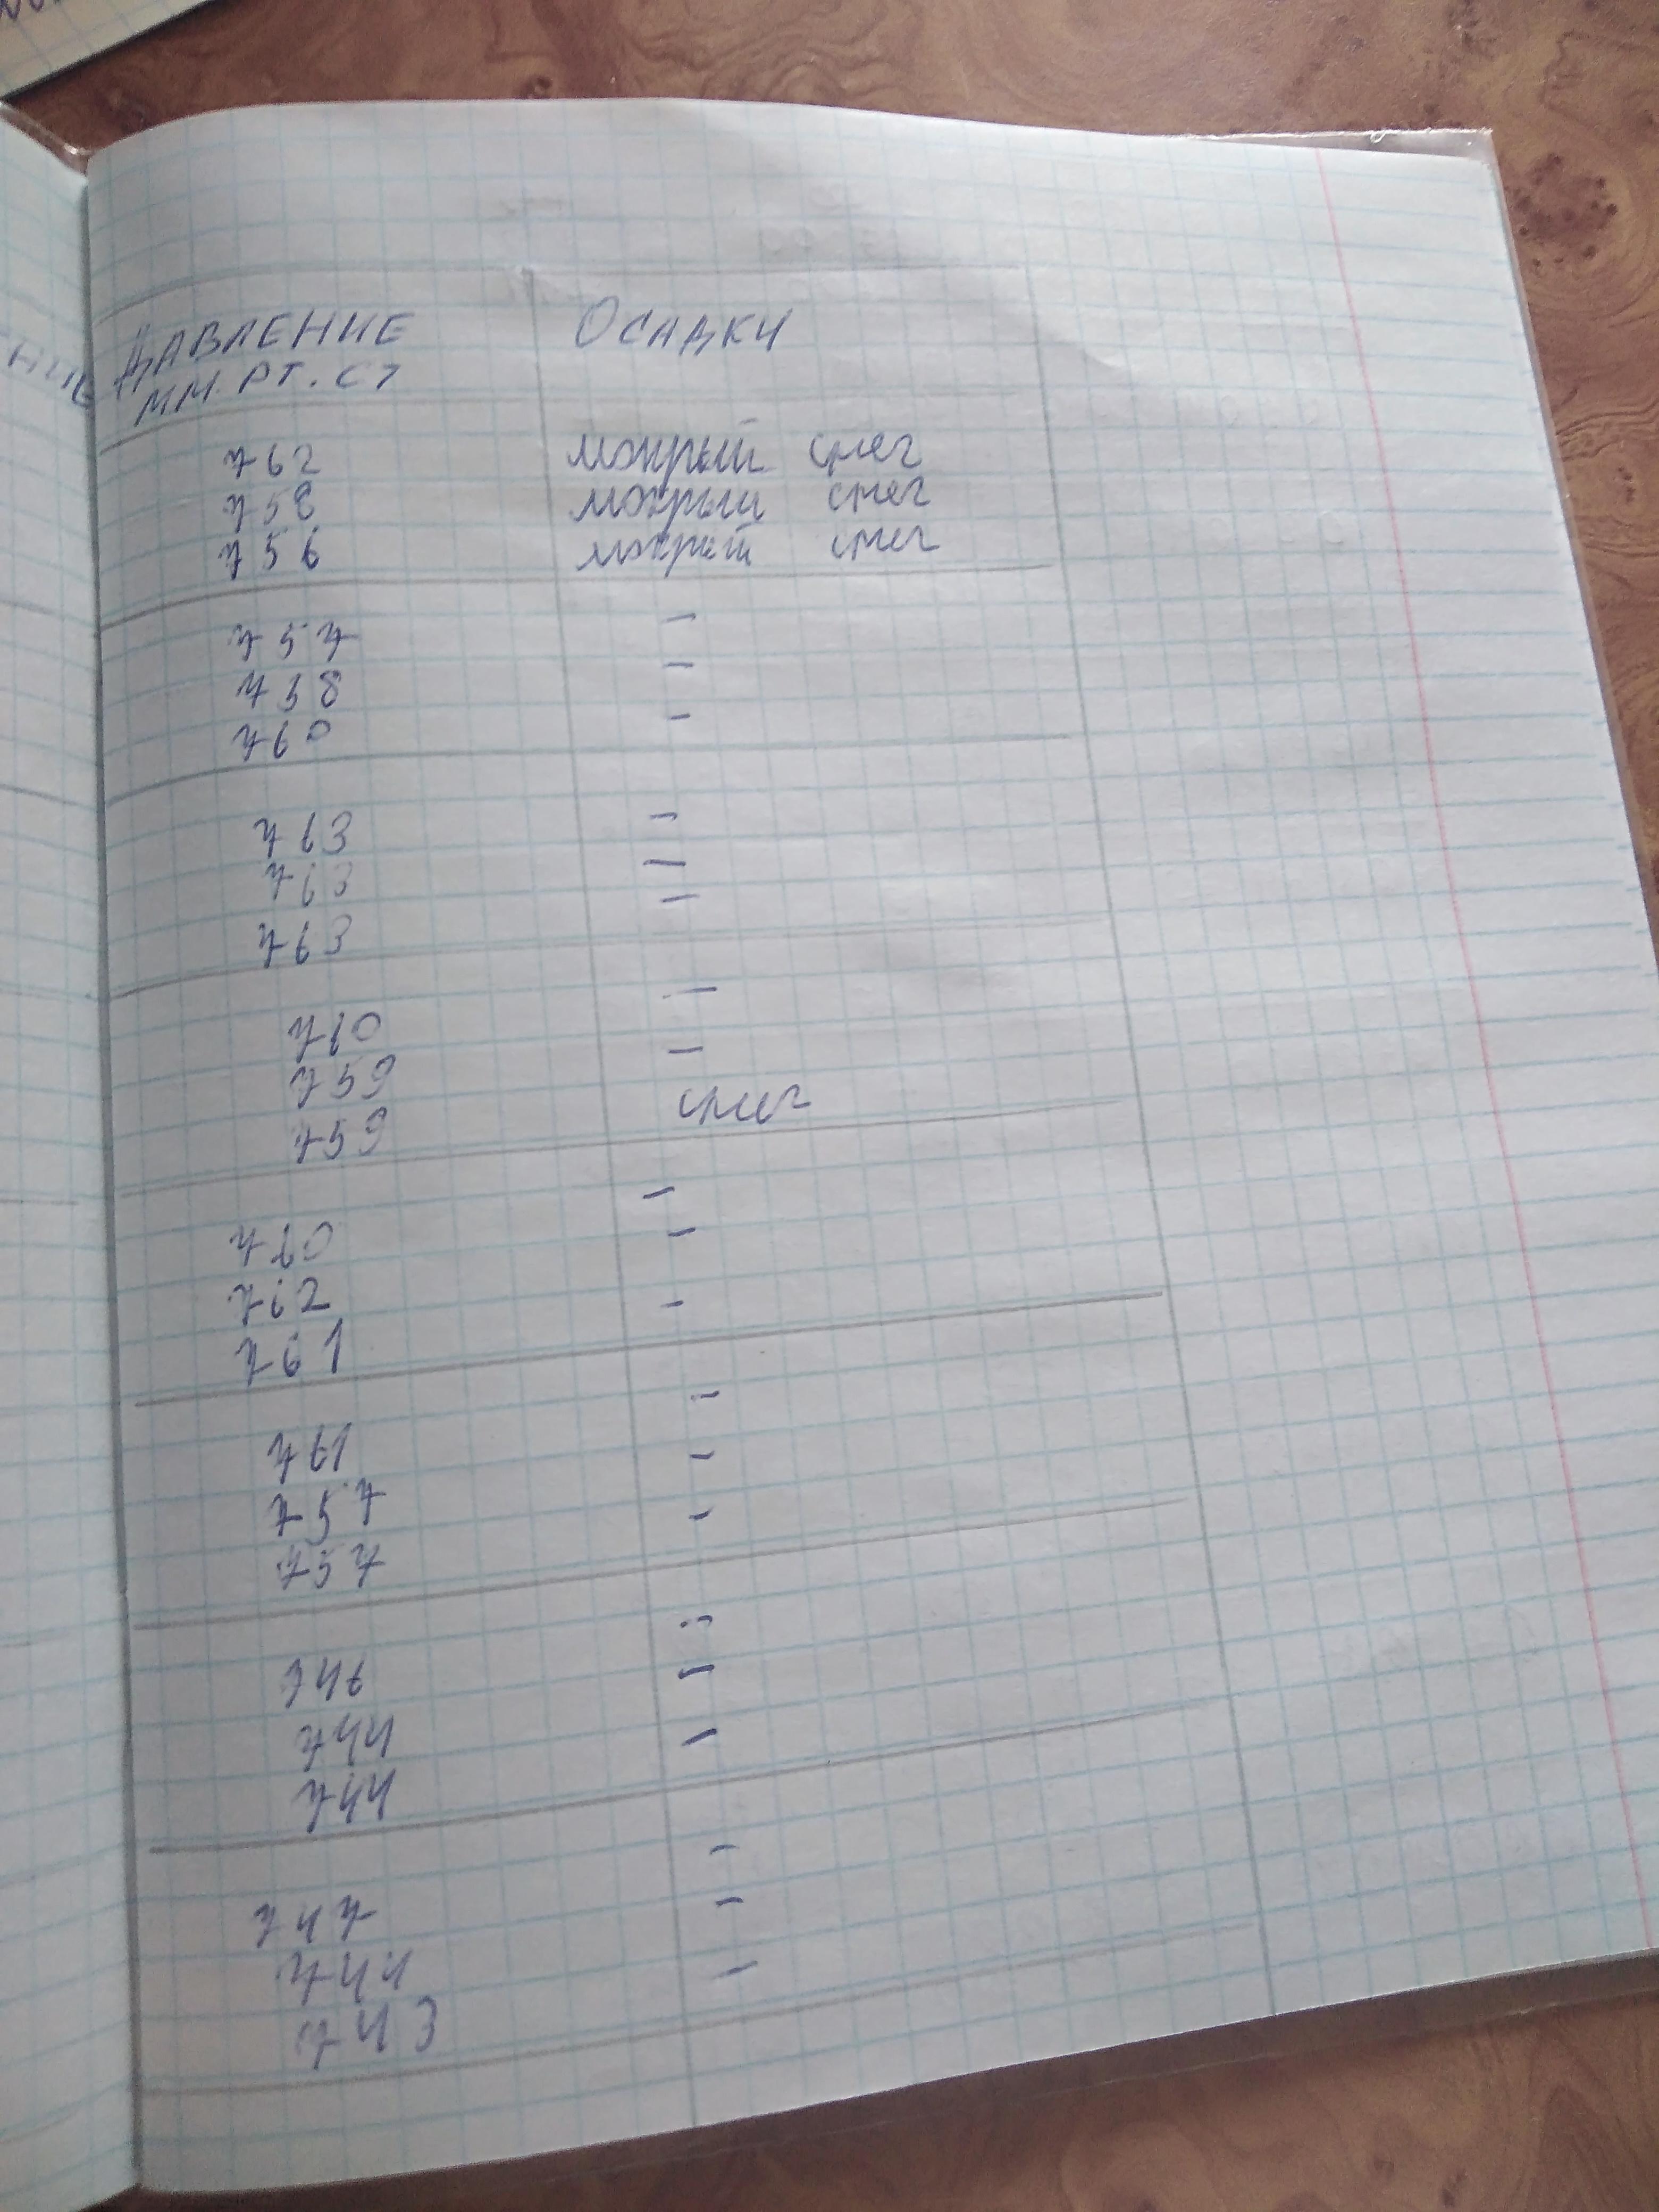 ДАВЛЕНИЕ ОСАДКИ
ММ. РТ. СТ
762 мокрый снег
758 мокрый снег
756 мокрый снег
757 –
758 –
760 –
763 –
763 –
763 –
760 –
759 –
759 снег
760 –
762 –
761 –
761 –
757 –
757 –
746 –
744 –
744 –
747 –
744 –
743 –